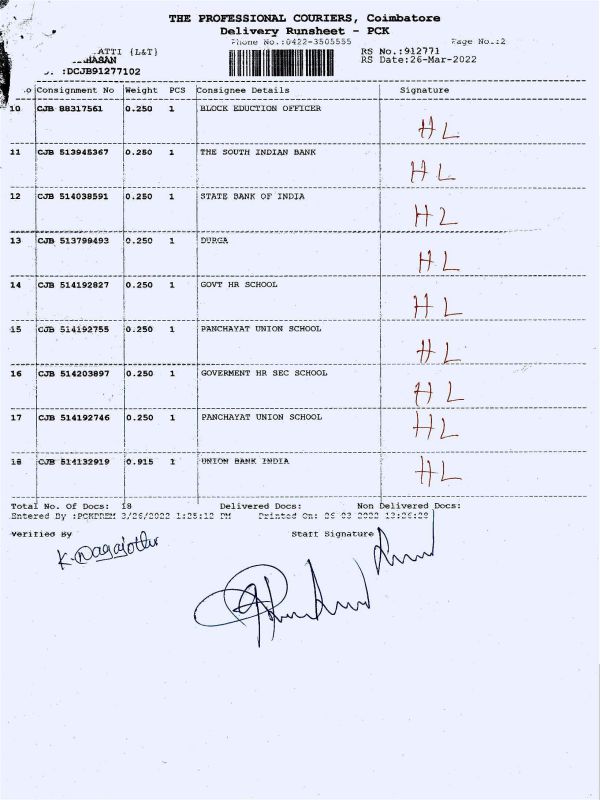 THE PROFESSIONAL COURIERS, Coimbatore
Delivery Runsheet - PCK
Phone No.:0422-3505555 Page No.:2
ATTI {L&T} RS No.:912771
HASAN RS Date:26-Mar-2022
:DCJB91277102
Consignment No Weight PCS Consignee Details Signature
10 CJB 88317561 0.250 1 BLOCK EDUCTION OFFICER HL
11 CJB 513945367 0.250 1 THE SOUTH INDIAN BANK HL
12 CJB 514038591 0.250 1 STATE BANK OF INDIA HL
13 CJB 513799493 0.250 1 DURGA HL
14 CJB 514192827 0.250 1 GOVT HR SCHOOL HL
15 CJB 514192755 0.250 1 PANCHAYAT UNION SCHOOL HL
16 CJB 514203897 0.250 1 GOVERMENT HR SEC SCHOOL HL
17 CJB 514192746 0.250 1 PANCHAYAT UNION SCHOOL HL
18 CJB 514132919 0.915 1 UNION BANK INDIA HL
Total No. Of Docs: 18 Delivered Docs: Non Delivered Docs:
Entered By :PCKPREM 3/26/2022 1:25:12 PM Printed On: 26 03 2022 13:26:28
Verified By Staff Signature